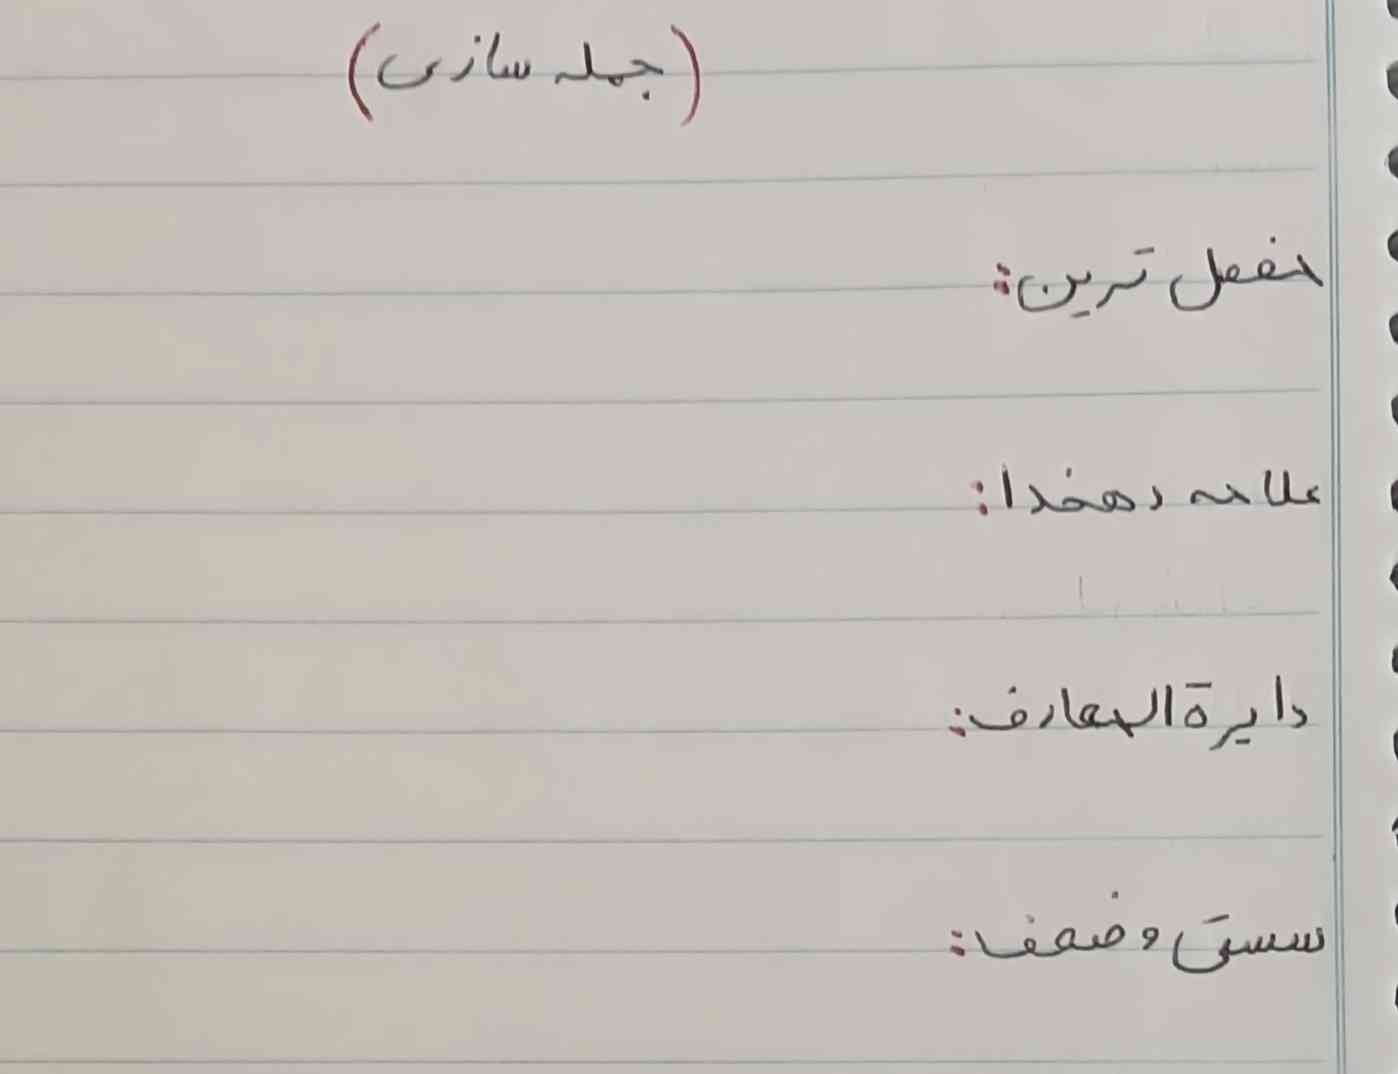 (جمله سازی)
مفصل ترین:
علامه دهخدا:
دایرة المعارف:
سستی و ضعف: